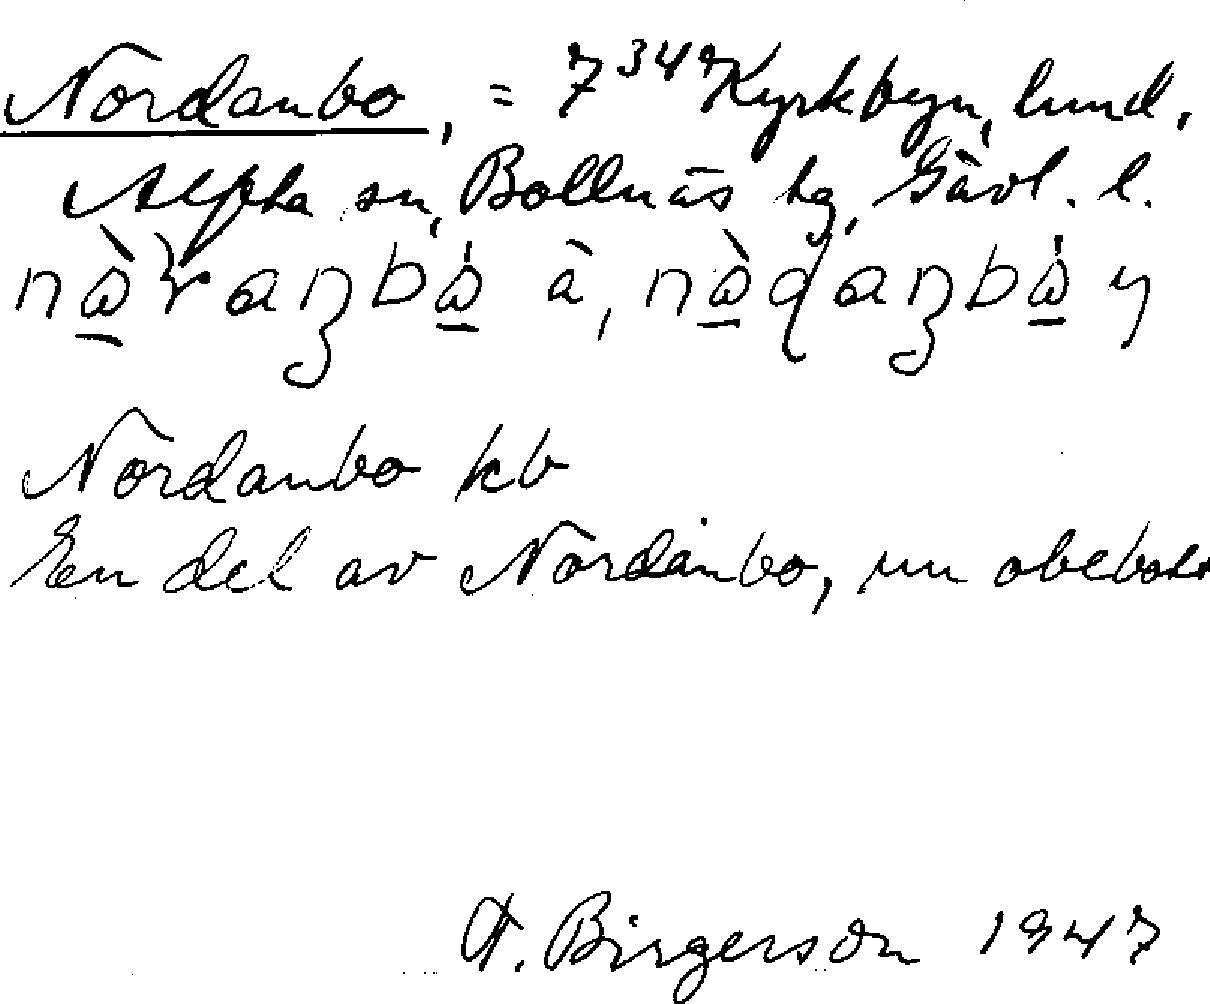 Nordanbo, = 7³⁴⁷ Kyrkbyn, lund,
Alfta sn, Bollnäs hg, Gävl. l.
à, y
Nordanbo kb
En del av Nordanbo, nu obebott
A. Birgerson 1947